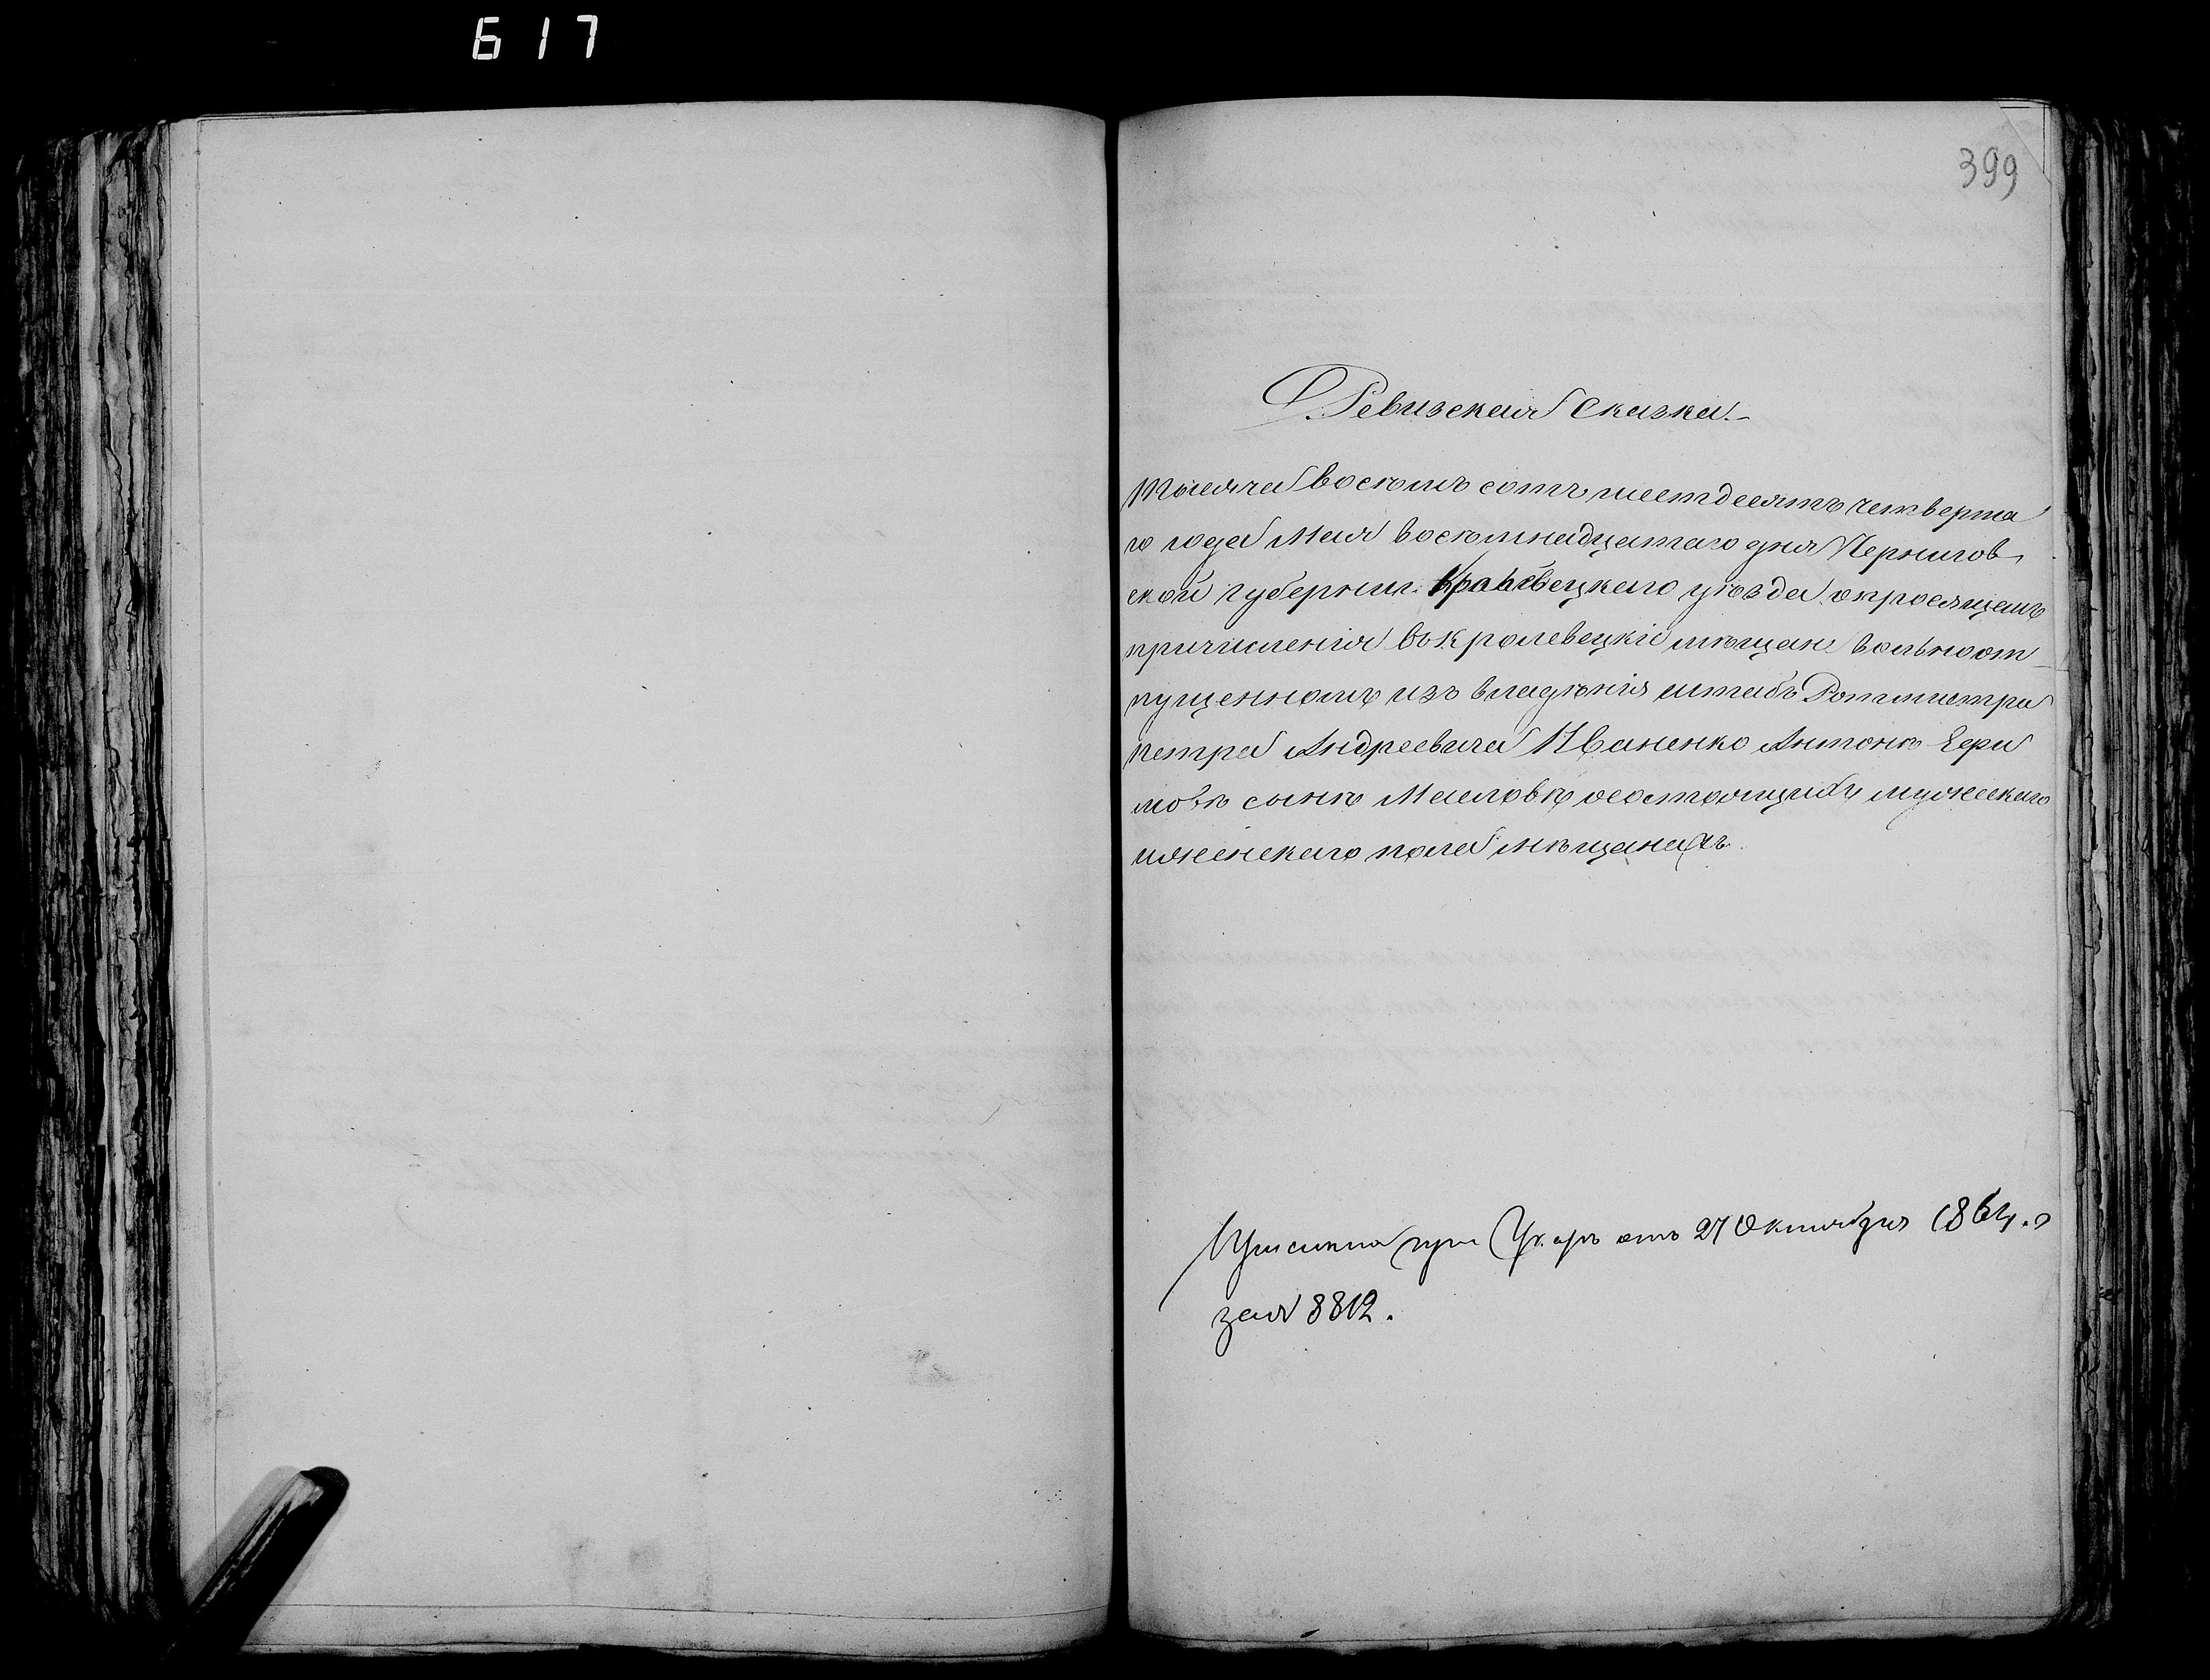 617
399
Ревизская Сказка.
Тысяча восемь сотъ шестдесятъ четверта
го года Мая восемнадцатаго дня Чернигов
ской губерніи Кролевецкаго уѣзда о просящемъ
причисленія въ Кролевецкіе мѣщане вольноот
пущенномъ изъ владѣнія штабъ Ротмистра
Петра Андреевича Иваненко Антонѣ
сынѣ Масловѣ о состоящихъ мужескаго
и женскаго пола мѣщанахъ.
при отъ 27 Октября 1864 г.
за № 8812.